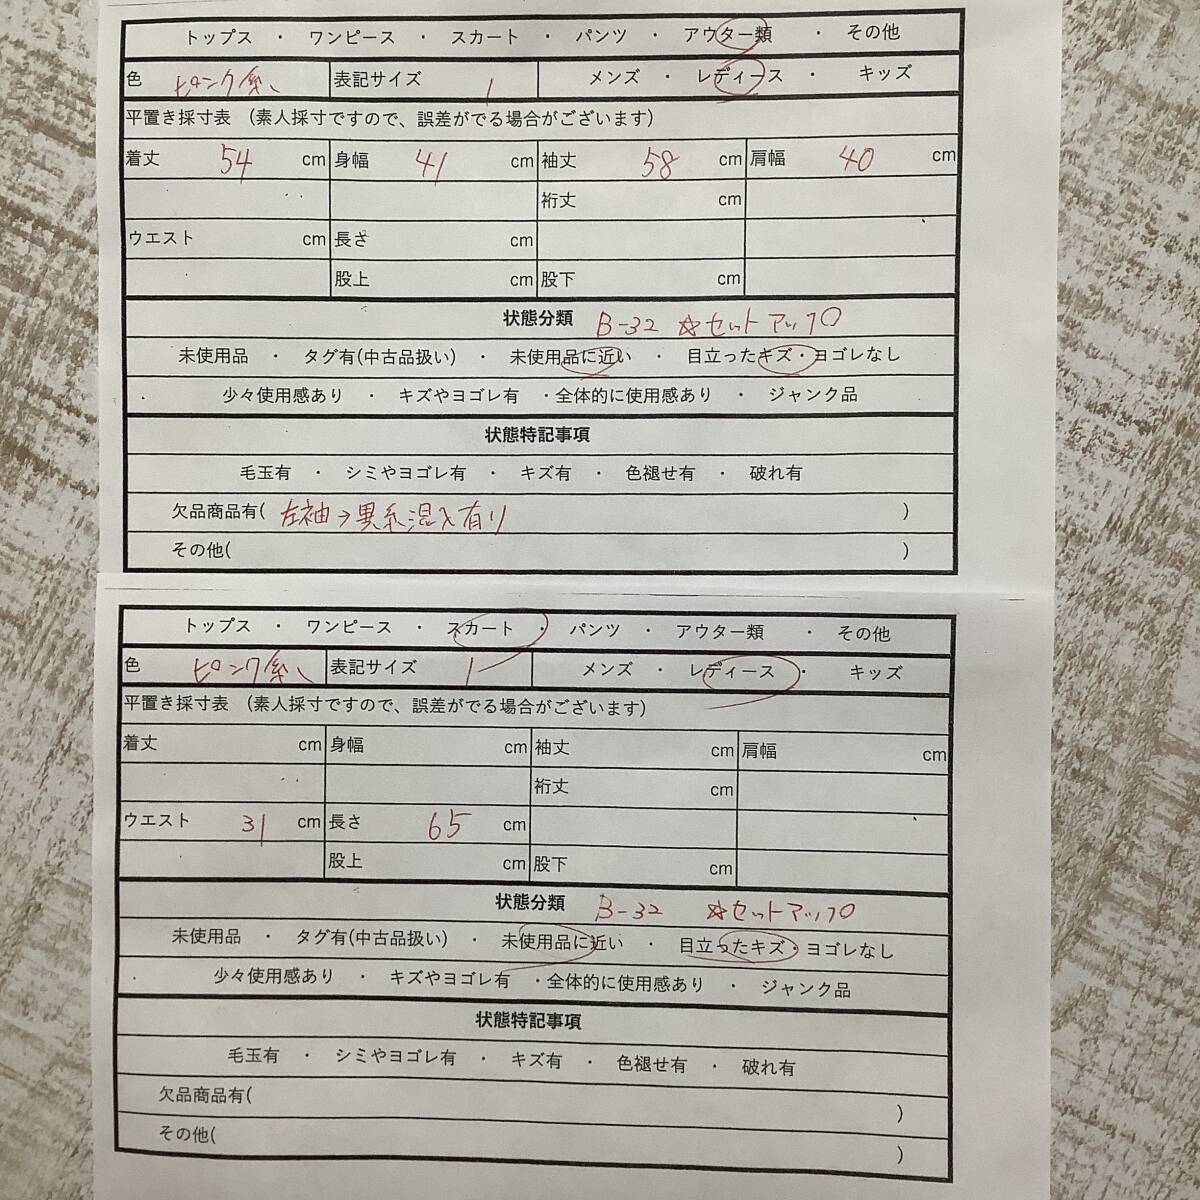 トップス ・ ワンピース ・ スカート ・ パンツ ・ アウター類 ・ その他
色 ピンク系 表記サイズ 1 メンズ ・ レディース ・ キッズ
平置き採寸表 (素人採寸ですので、誤差がでる場合がございます)
着丈 54 cm 身幅 41 cm 袖丈 58 cm 肩幅 40 cm
裄丈 cm
ウエスト cm 長さ cm
股上 cm 股下 cm
状態分類 B-32 ☆セットアップ
未使用品 ・ タグ有(中古品扱い) ・ 未使用品に近い ・ 目立ったキズ・ヨゴレなし
少々使用感あり ・ キズやヨゴレ有 ・全体的に使用感あり ・ ジャンク品
状態特記事項
毛玉有 ・ シミやヨゴレ有 ・ キズ有 ・ 色褪せ有 ・ 破れ有
欠品商品有( 左袖→異糸混入有り )
その他( )
トップス ・ ワンピース ・ スカート ・ パンツ ・ アウター類 ・ その他
色 ピンク系 表記サイズ 1 メンズ ・ レディース ・ キッズ
平置き採寸表 (素人採寸ですので、誤差がでる場合がございます)
着丈 cm 身幅 cm 袖丈 cm 肩幅 cm
裄丈 cm
ウエスト 31 cm 長さ 65 cm
股上 cm 股下 cm
状態分類 B-32 ☆セットアップ
未使用品 ・ タグ有(中古品扱い) ・ 未使用品に近い ・ 目立ったキズ・ヨゴレなし
少々使用感あり ・ キズやヨゴレ有 ・全体的に使用感あり ・ ジャンク品
状態特記事項
毛玉有 ・ シミやヨゴレ有 ・ キズ有 ・ 色褪せ有 ・ 破れ有
欠品商品有( )
その他( )